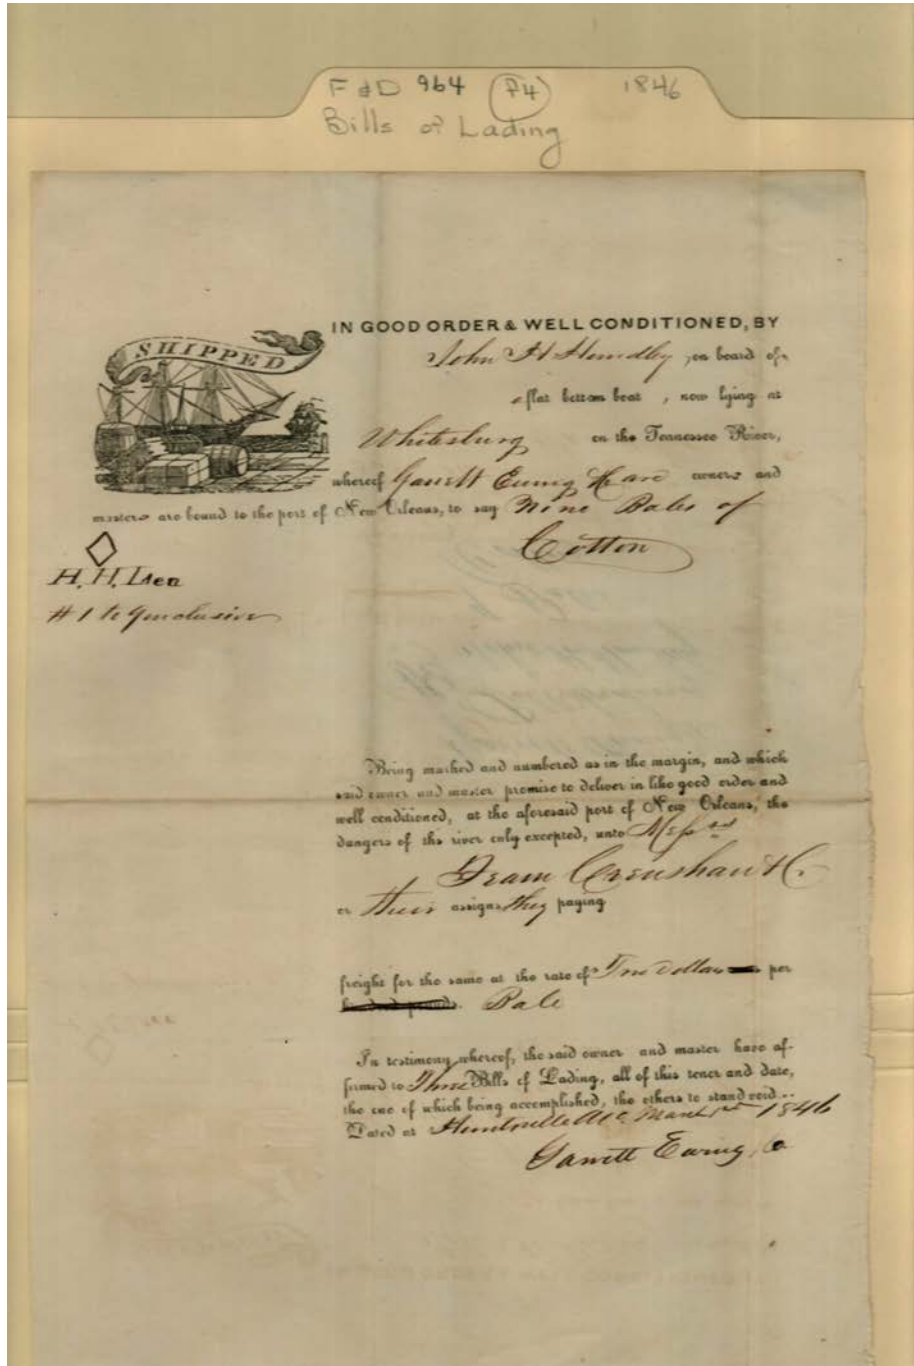 F & D 964 P4 1846
Bills of Lading
SHIPPED
IN GOOD ORDER & WELL CONDITIONED, BY
John H Hundley, on board of
a flat bottom boat, now lying at
Whitesburg on the Tennessee River,
whereof Garrett Ewing & Co are owners and
masters are bound to the port of New Orleans, to say Nine Bales of
Cotton
H. H.
# 1 to 9 inclusive
Being marked and numbered as in the margin, and which
said owner and master promise to deliver in like good order and
well conditioned, at the aforesaid port of New Orleans, the
dangers of the river only excepted, unto Messrs
Crenshaw & Co
or their assigns they paying
freight for the same at the rate of Two Dollars per
hundred pounds. Bale
In testimony whereof, the said owner and master have af-
firmed to Three Bills of Lading, all of this tenor and date,
the one of which being accomplished, the others to stand void..
Dated at Huntsville 1st 1846
Garrett Ewing & Co